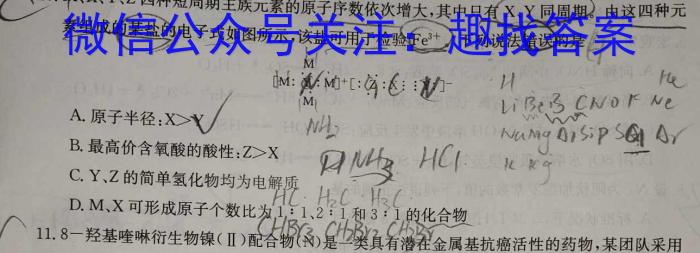 Z四种短周期主族元素的原子序数依次增大,其中只有X、Y同周期。由这四种元
素组成的某盐的电子式如图所示,该盐可用于检验Fe³⁺。下列说法错误的是
微信公众号关注:趣找答案
H He
Li Be B C N O F Ne
Na Mg Al Si P S Cl Ar
A. 原子半径:X>Y
NH₃
B. 最高价含氧酸的酸性:Z>X
NH₃ HCl
K
C. Y、Z的简单氢化物均为电解质
HC H₂C H₃C
D. M、X可形成原子个数比为1∶1、2∶1和3∶1的化合物
CHBr₃ CH₂Br₂ CH₃Br
11.8-羟基喹啉衍生物镍(Ⅱ)配合物(N)是一类具有潜在金属基抗癌活性的药物,某团队采用